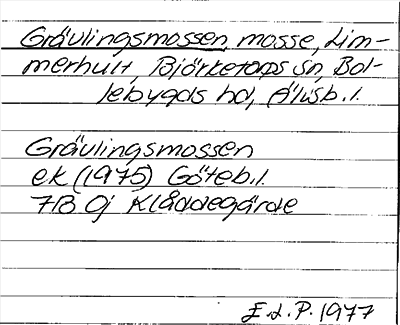 Grävlingsmossen, mosse, Lim-
merhult, Björketorps sn, Bol-
lebygds hd, Älvsb.l.
Grävlingsmossen
ek (1975) Göteb.l.
7B 0j Klåddegärde
E.L.P. 1977